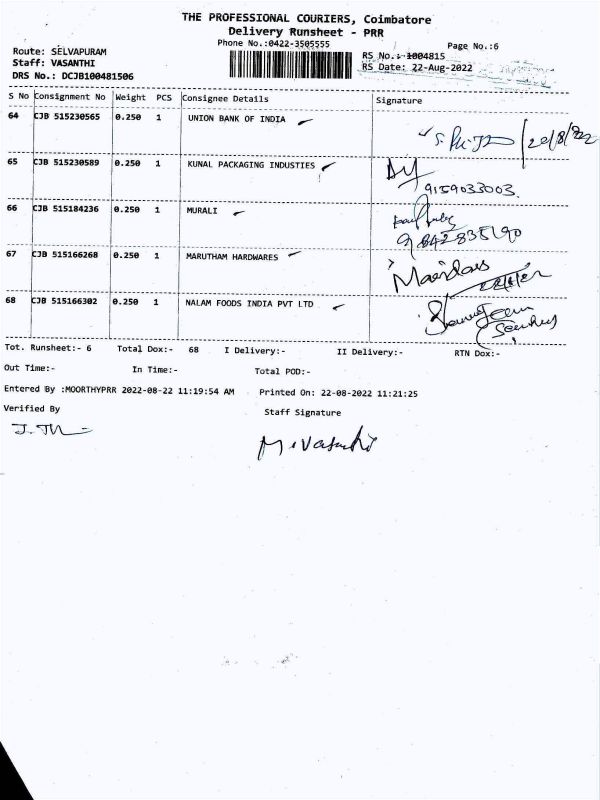 THE PROFESSIONAL COURIERS, Coimbatore
Delivery Runsheet - PRR
Phone No.:0422-3505555
Page No.:6
Route: SELVAPURAM
RS No.: 1004815
Staff: VASANTHI
RS Date: 22-Aug-2022
DRS No.: DCJB100481506
S No Consignment No Weight PCS Consignee Details Signature
64 CJB 515230565 0.250 1 UNION BANK OF INDIA
22/8/22
65 CJB 515230589 0.250 1 KUNAL PACKAGING INDUSTIES
9159033003
66 CJB 515184236 0.250 1 MURALI
9842835190
67 CJB 515166268 0.250 1 MARUTHAM HARDWARES
68 CJB 515166302 0.250 1 NALAM FOODS INDIA PVT LTD
Tot. Runsheet:- 6 Total Dox:- 68 I Delivery:- II Delivery:- RTN Dox:-
Out Time:- In Time:- Total POD:-
Entered By :MOORTHYPRR 2022-08-22 11:19:54 AM Printed On: 22-08-2022 11:21:25
Verified By Staff Signature
M. Vasanthi